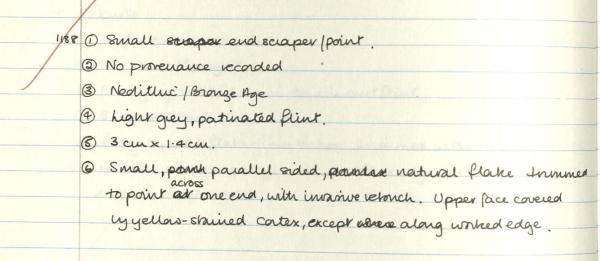 1188 ① Small scraper end scraper/point.
② No provenance recorded
③ Neolithic/Bronze Age
④ Light grey, patinated flint.
⑤ 3 cm x 1.4 cm.
⑥ Small, parallel sided, natural flake trimmed
to point at across one end, with invasive retouch. Upper face covered
by yellow-stained cortex, except where along worked edge.